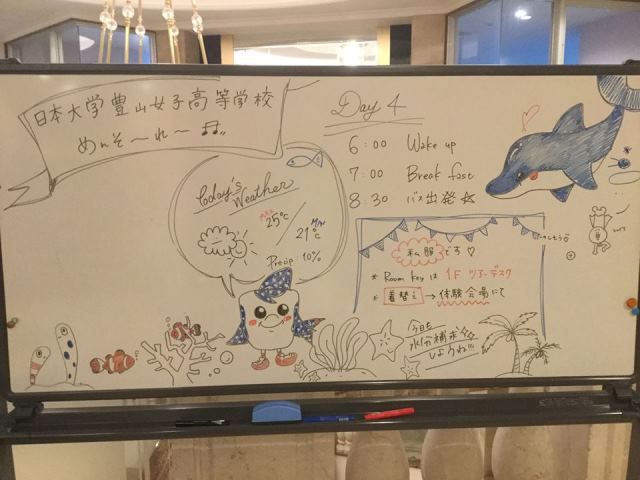 日本大学豊山女子高等学校
めんそ〜れ〜 ♫
Day 4
6:00 Wake up
7:00 Break fast
8:30 バス出発☆
Today's Weather
MAX
25℃ / MIN 21℃
Precip: 10%
私服です♡
* Room Key は 1F ツアーデスク
* 着替え → 体験会場にて
今日も
水分補求
しようね!!!